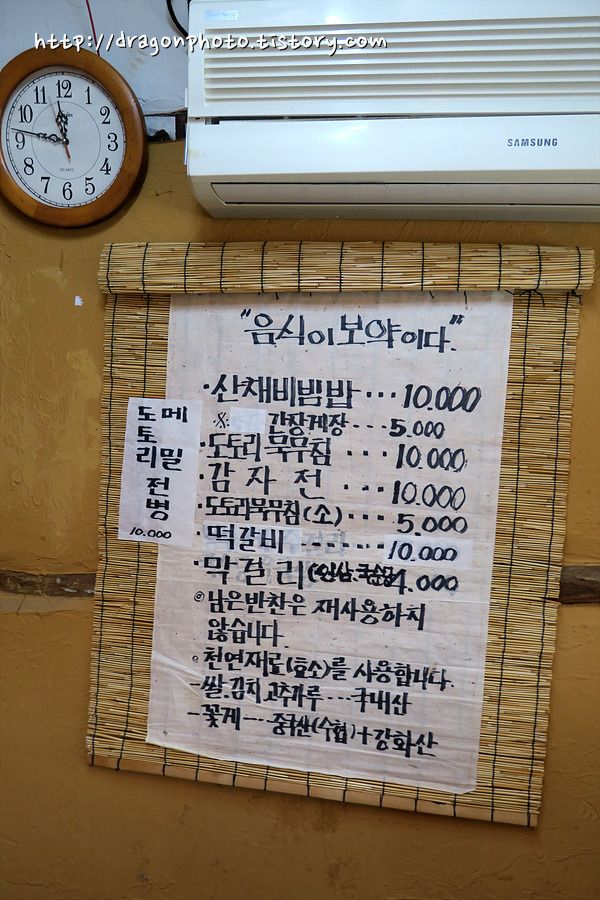 http://dragonphoto.tistory.com
SAMSUNG
12
11
1
10
2
9
3
8
4
7
5
6
QUARTZ
"음식이 보약이다."
·산채비빔밥 ··· 10.000
※ 간장게장 --- 5.000
·도토리묵무침 ··· 10.000
·감자전 ··· 10.000
·도토리묵무침(소) ··· 5.000
·떡갈비 ------ 10.000
·막걸리(인삼.국순당) 4.000
◎남은반찬은 재사용하지
않습니다.
◦천연재료(효소)를 사용합니다.
-쌀.김치.고추가루 --- 국내산
-꽃게 --- 중국산(수협)+강화산
도토리전병
메밀
10.000